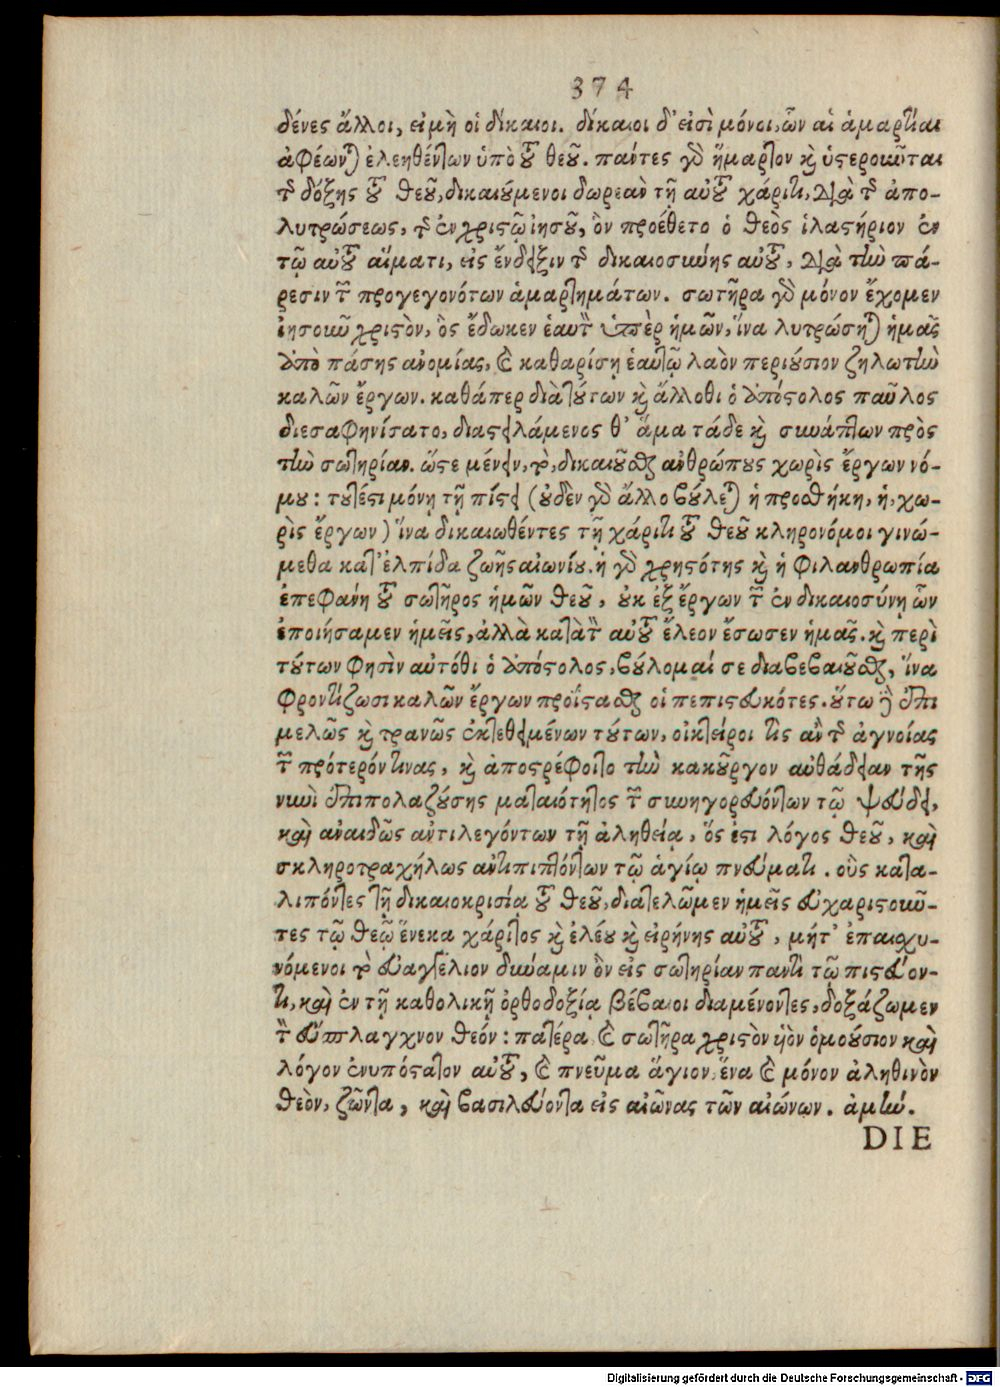 374
δένες ἄλλοι, εἰμὴ οἱ δίκαιοι. δίκαιοι δ' εἰσὶ μόνοι, ὧν αἱ ἁμαρτίαι
ἀφέωνται ἐλεηθέντων ὑπὸ τοῦ θεοῦ. πάντες γὸ ἥμαρτον καὶ ὑστεροῦνται
τῆς δόξης τοῦ θεοῦ, δικαιούμενοι δωρεὰν τῇ αὐτοῦ χάριτι, διὰ τῆς ἀπο-
λυτρώσεως, τῆς ἐν χριστῷ ἰησοῦ, ὃν προέθετο ὁ θεὸς ἱλαστήριον ἐν
τῷ αὐτοῦ αἵματι, εἰς ἔνδειξιν τῆς δικαιοσύνης αὐτοῦ, διὰ τὴν πά-
ρεσιν τῶν προγεγονότων ἁμαρτημάτων. σωτῆρα γὰρ μόνον ἔχομεν
ἰησοῦν χριστὸν, ὃς ἔδωκεν ἑαυτὸν ὑπὲρ ἡμῶν, ἵνα λυτρώσηται ἡμᾶς
ἀπὸ πάσης ἀνομίας, καὶ καθαρίσῃ ἑαυτῷ λαὸν περιούσιον ζηλωτὴν
καλῶν ἔργων. καθάπερ διὰ τούτων καὶ ἄλλοθι ὁ ἀπόστολος παῦλος
διεσαφηνίσατο, διαστειλάμενος θ' ἅμα τάδε καὶ συνάπτων πρὸς
τὴν σωτηρίαν. ὥστε μένειν, τὸ, δικαιοῦσθαι ἀνθρώπους χωρὶς ἔργων νό-
μου: τουτέστι μόνῃ τῇ πίστει (οὐδὲν γὰρ ἄλλο βούλεται ἡ προσθήκη, ἡ, χω-
ρὶς ἔργων) ἵνα δικαιωθέντες τῇ χάριτι τοῦ θεοῦ κληρονόμοι γινώ-
μεθα κατ' ἐλπίδα ζωῆς αἰωνίου. ἡ γὰρ χρηστότης καὶ ἡ φιλανθρωπία
ἐπεφάνη τοῦ σωτῆρος ἡμῶν θεοῦ, οὐκ ἐξ ἔργων τῶν ἐν δικαιοσύνῃ ὧν
ἐποιήσαμεν ἡμεῖς, ἀλλὰ κατὰ τὸν αὐτοῦ ἔλεον ἔσωσεν ἡμᾶς. καὶ περὶ
τούτων φησὶν αὐτόθι ὁ ἀπόστολος, βούλομαί σε διαβεβαιοῦσθαι, ἵνα
φροντίζωσι καλῶν ἔργων προΐστασθαι οἱ πεπιστευκότες. οὕτω δὲ ἐπι
μελῶς καὶ τρανῶς ἐκτεθειμένων τούτων, οἰκτείροι τὶς ἂν τῆς ἀγνοίας
τῶν πρότερόν τινας, καὶ ἀποστρέφοιτο τὴν κακοῦργον αὐθάδειαν τῆς
νυνὶ ἐπιπολαζούσης ματαιότητος τῶν συνηγορευόντων τῷ ψεύδει,
καὶ ἀναιδῶς ἀντιλεγόντων τῇ ἀληθείᾳ, ὅς ἐστι λόγος θεοῦ, καὶ
σκληροτραχήλως ἀντιπιπτόντων τῷ ἁγίῳ πνεύματι. οὓς κατα-
λιπόντες τῇ δικαιοκρισίᾳ τοῦ θεοῦ, διατελῶμεν ἡμεῖς εὐχαριστοῦν-
τες τῷ θεῷ ἕνεκα χάριτος καὶ ἐλέου καὶ εἰρήνης αὐτοῦ, μήτ' ἐπαισχυ-
νόμενοι τὸ εὐαγγέλιον δύναμιν ὂν εἰς σωτηρίαν παντὶ τῷ πιστεύον-
τι, καὶ ἐν τῇ καθολικῇ ὀρθοδοξίᾳ βέβαιοι διαμένοντες, δοξάζωμεν
τὸν εὔσπλαγχνον θεόν: πατέρα καὶ σωτῆρα χριστὸν υἱὸν ὁμοούσιον καὶ
λόγον ἐνυπόστατον αὐτοῦ, καὶ πνεῦμα ἅγιον, ἕνα καὶ μόνον ἀληθινὸν
θεὸν, ζῶντα, καὶ βασιλεύοντα εἰς αἰῶνας τῶν αἰώνων. ἀμήν.
DIE
Digitalisierung gefördert durch die Deutsche Forschungsgemeinschaft - DFG